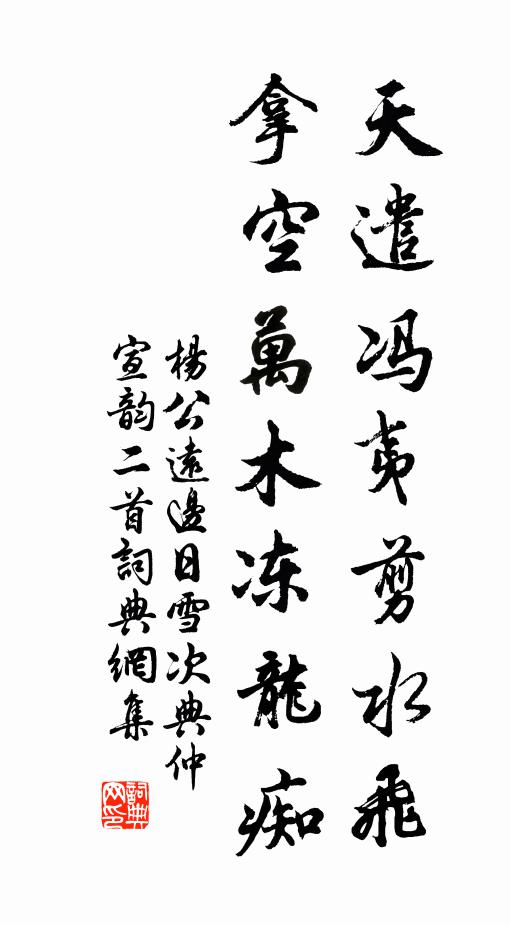 天遣冯夷剪水飛
拿空萬木冻龍痴
楊公遠邊日雪次典仲
宣韵二首詞典網集
詞典
网印